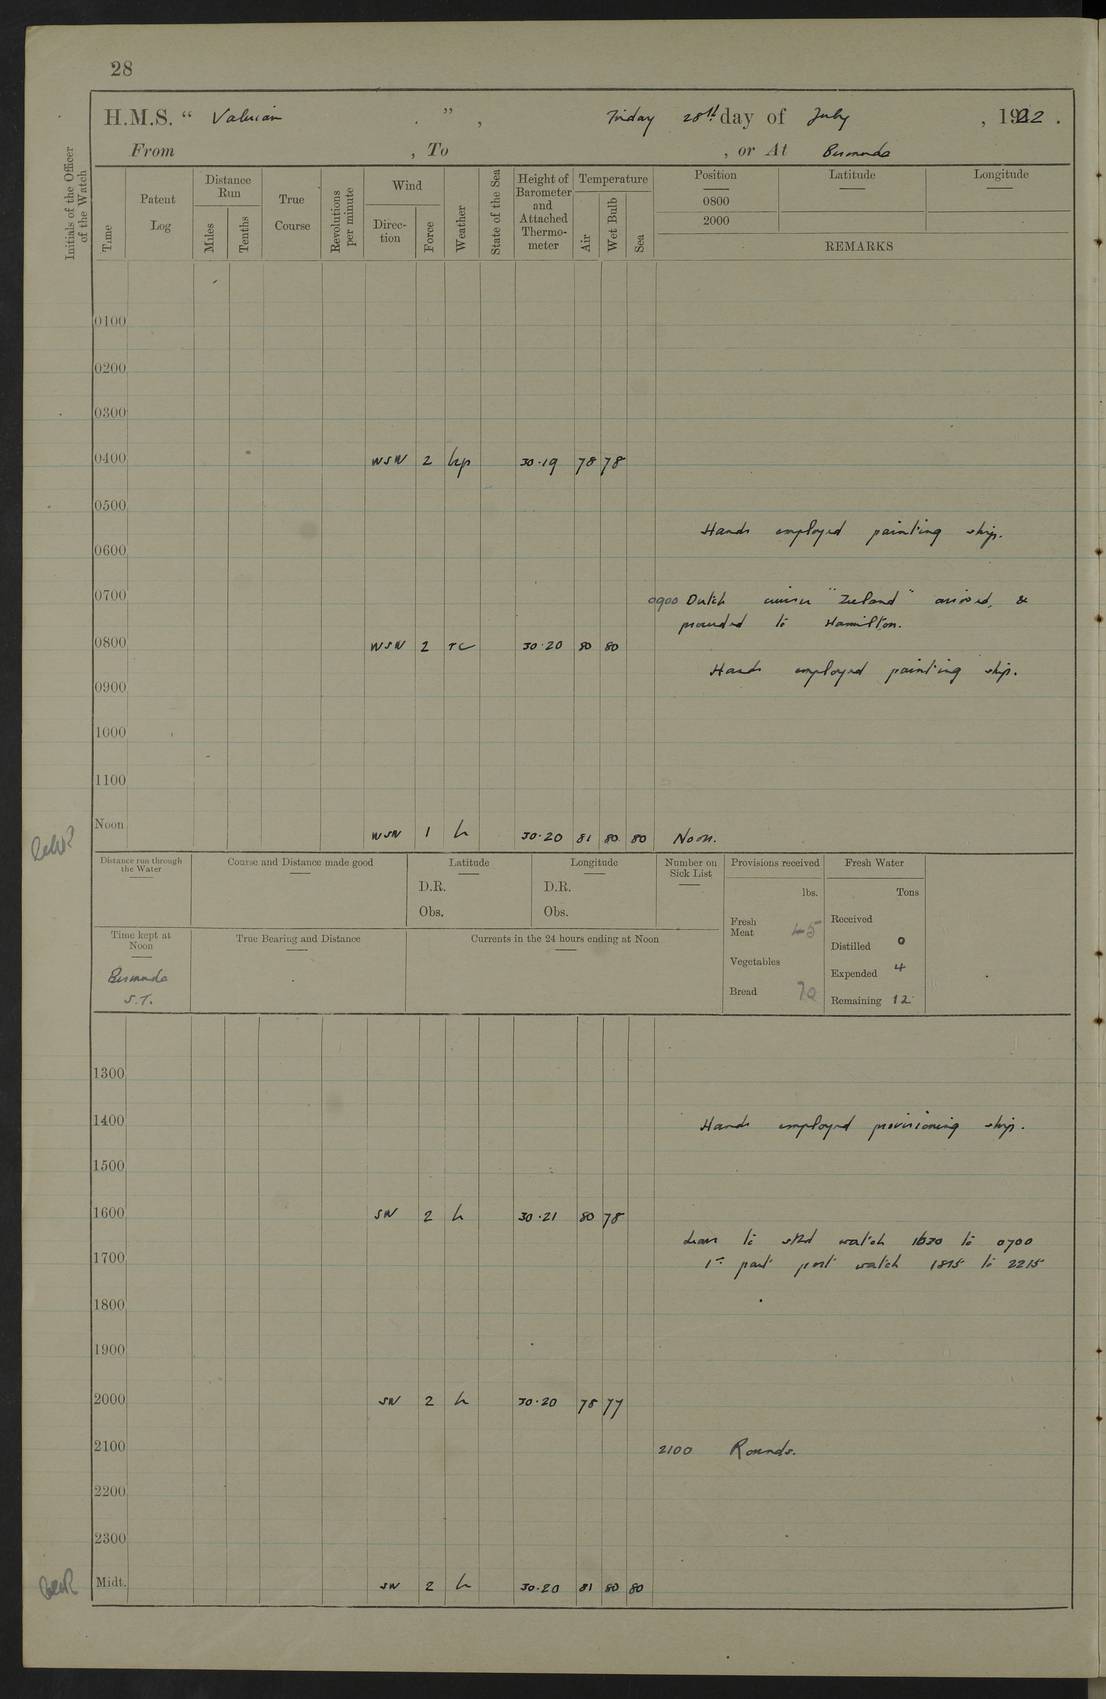 28
H.M.S. “ Valerian ”, Friday 28th day of July, 1922.
From , To , or At Bermuda
Initials of the Officer of the Watch
Time
Patent Log
Distance Run
Miles
Tenths
True Course
Revolutions per minute
Wind
Direc-tion
Force
Weather
State of the Sea
Height of Barometer and Attached Thermo-meter
Temperature
Air
Wet Bulb
Sea
Position Latitude Longitude
0800
2000
REMARKS
0100
0200
0300
0400 WSW 2 30·19 78 78
0500
Hands employed painting ship.
0600
0700
0900 Dutch cruiser "Zeeland" arrived, &
proceeded to Hamilton.
0800 WSW 2 rc 30·20 80 80
Hands employed painting ship.
0900
1000
1100
Noon WSW 1 b 30·20 81 80 80 Noon.
Distance run through the Water
Course and Distance made good
Latitude
D.R.
Obs.
Longitude
D.R.
Obs.
Number on Sick List
Provisions received
lbs.
Fresh Meat 45
Vegetables
Bread 70
Fresh Water
Tons
Received
Distilled 0
Expended 4
Remaining 12
Time kept at Noon
Bermuda
S.T.
True Bearing and Distance
Currents in the 24 hours ending at Noon
1300
1400 Hands employed provisioning ship.
1500
1600 SW 2 b 30·21 80 78
Leave to stbd watch 1630 to 0700
1700 1st part port watch 1815 to 2215
1800
1900
2000 SW 2 b 30·20 78 77
2100 2100 Rounds.
2200
2300
Midt. SW 2 b 30·20 81 80 80